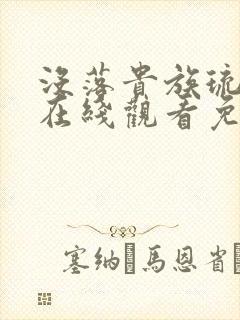 没落貴族琉
在綫觀看免
塞納·馬恩省